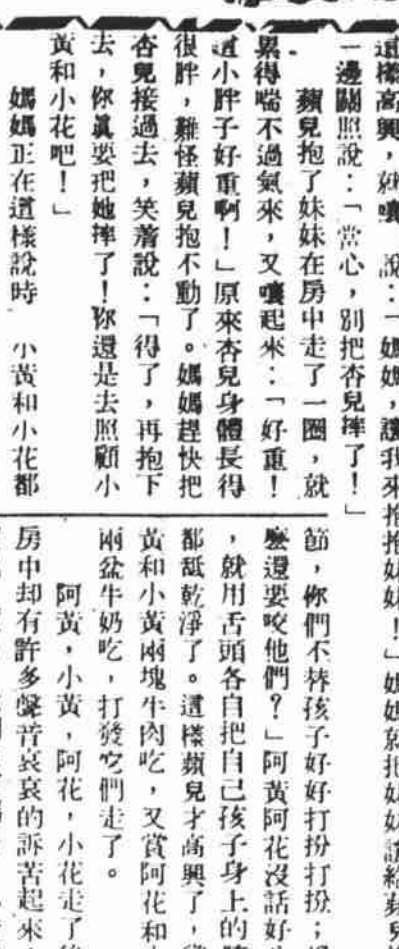 這樣高興，就嚷 說：「媽媽，讓我來抱抱妹妹！」媽媽就把妹妹
一邊關照說：「當心，別把杏兒摔了！」
蘋兒抱了妹妹在房中走了一圈，就
累得喘不過氣來，又嚷起來：「好重！
這小胖子好重啊！」原來杏兒身體長得
很胖，難怪蘋兒抱不動了。媽媽趕快把
杏兒接過去，笑着說：「得了，再抱下
去，你眞要把她摔了！你還是去照顧小
黃和小花吧！」
媽媽正在這樣說時 小黃和小花都
節，你們不替孩子好好打扮打扮；
麼還要咬他們？」阿黃阿花沒話好
，就用舌頭各自把自己孩子身上的
都舐乾淨了。這樣蘋兒才高興了，
黃和小黃兩塊牛肉吃，又賞阿花和
兩盆牛奶吃，打發它們走了。
阿黃，小黃，阿花，小花走了
房中却有許多聲音哀哀的訴苦起來